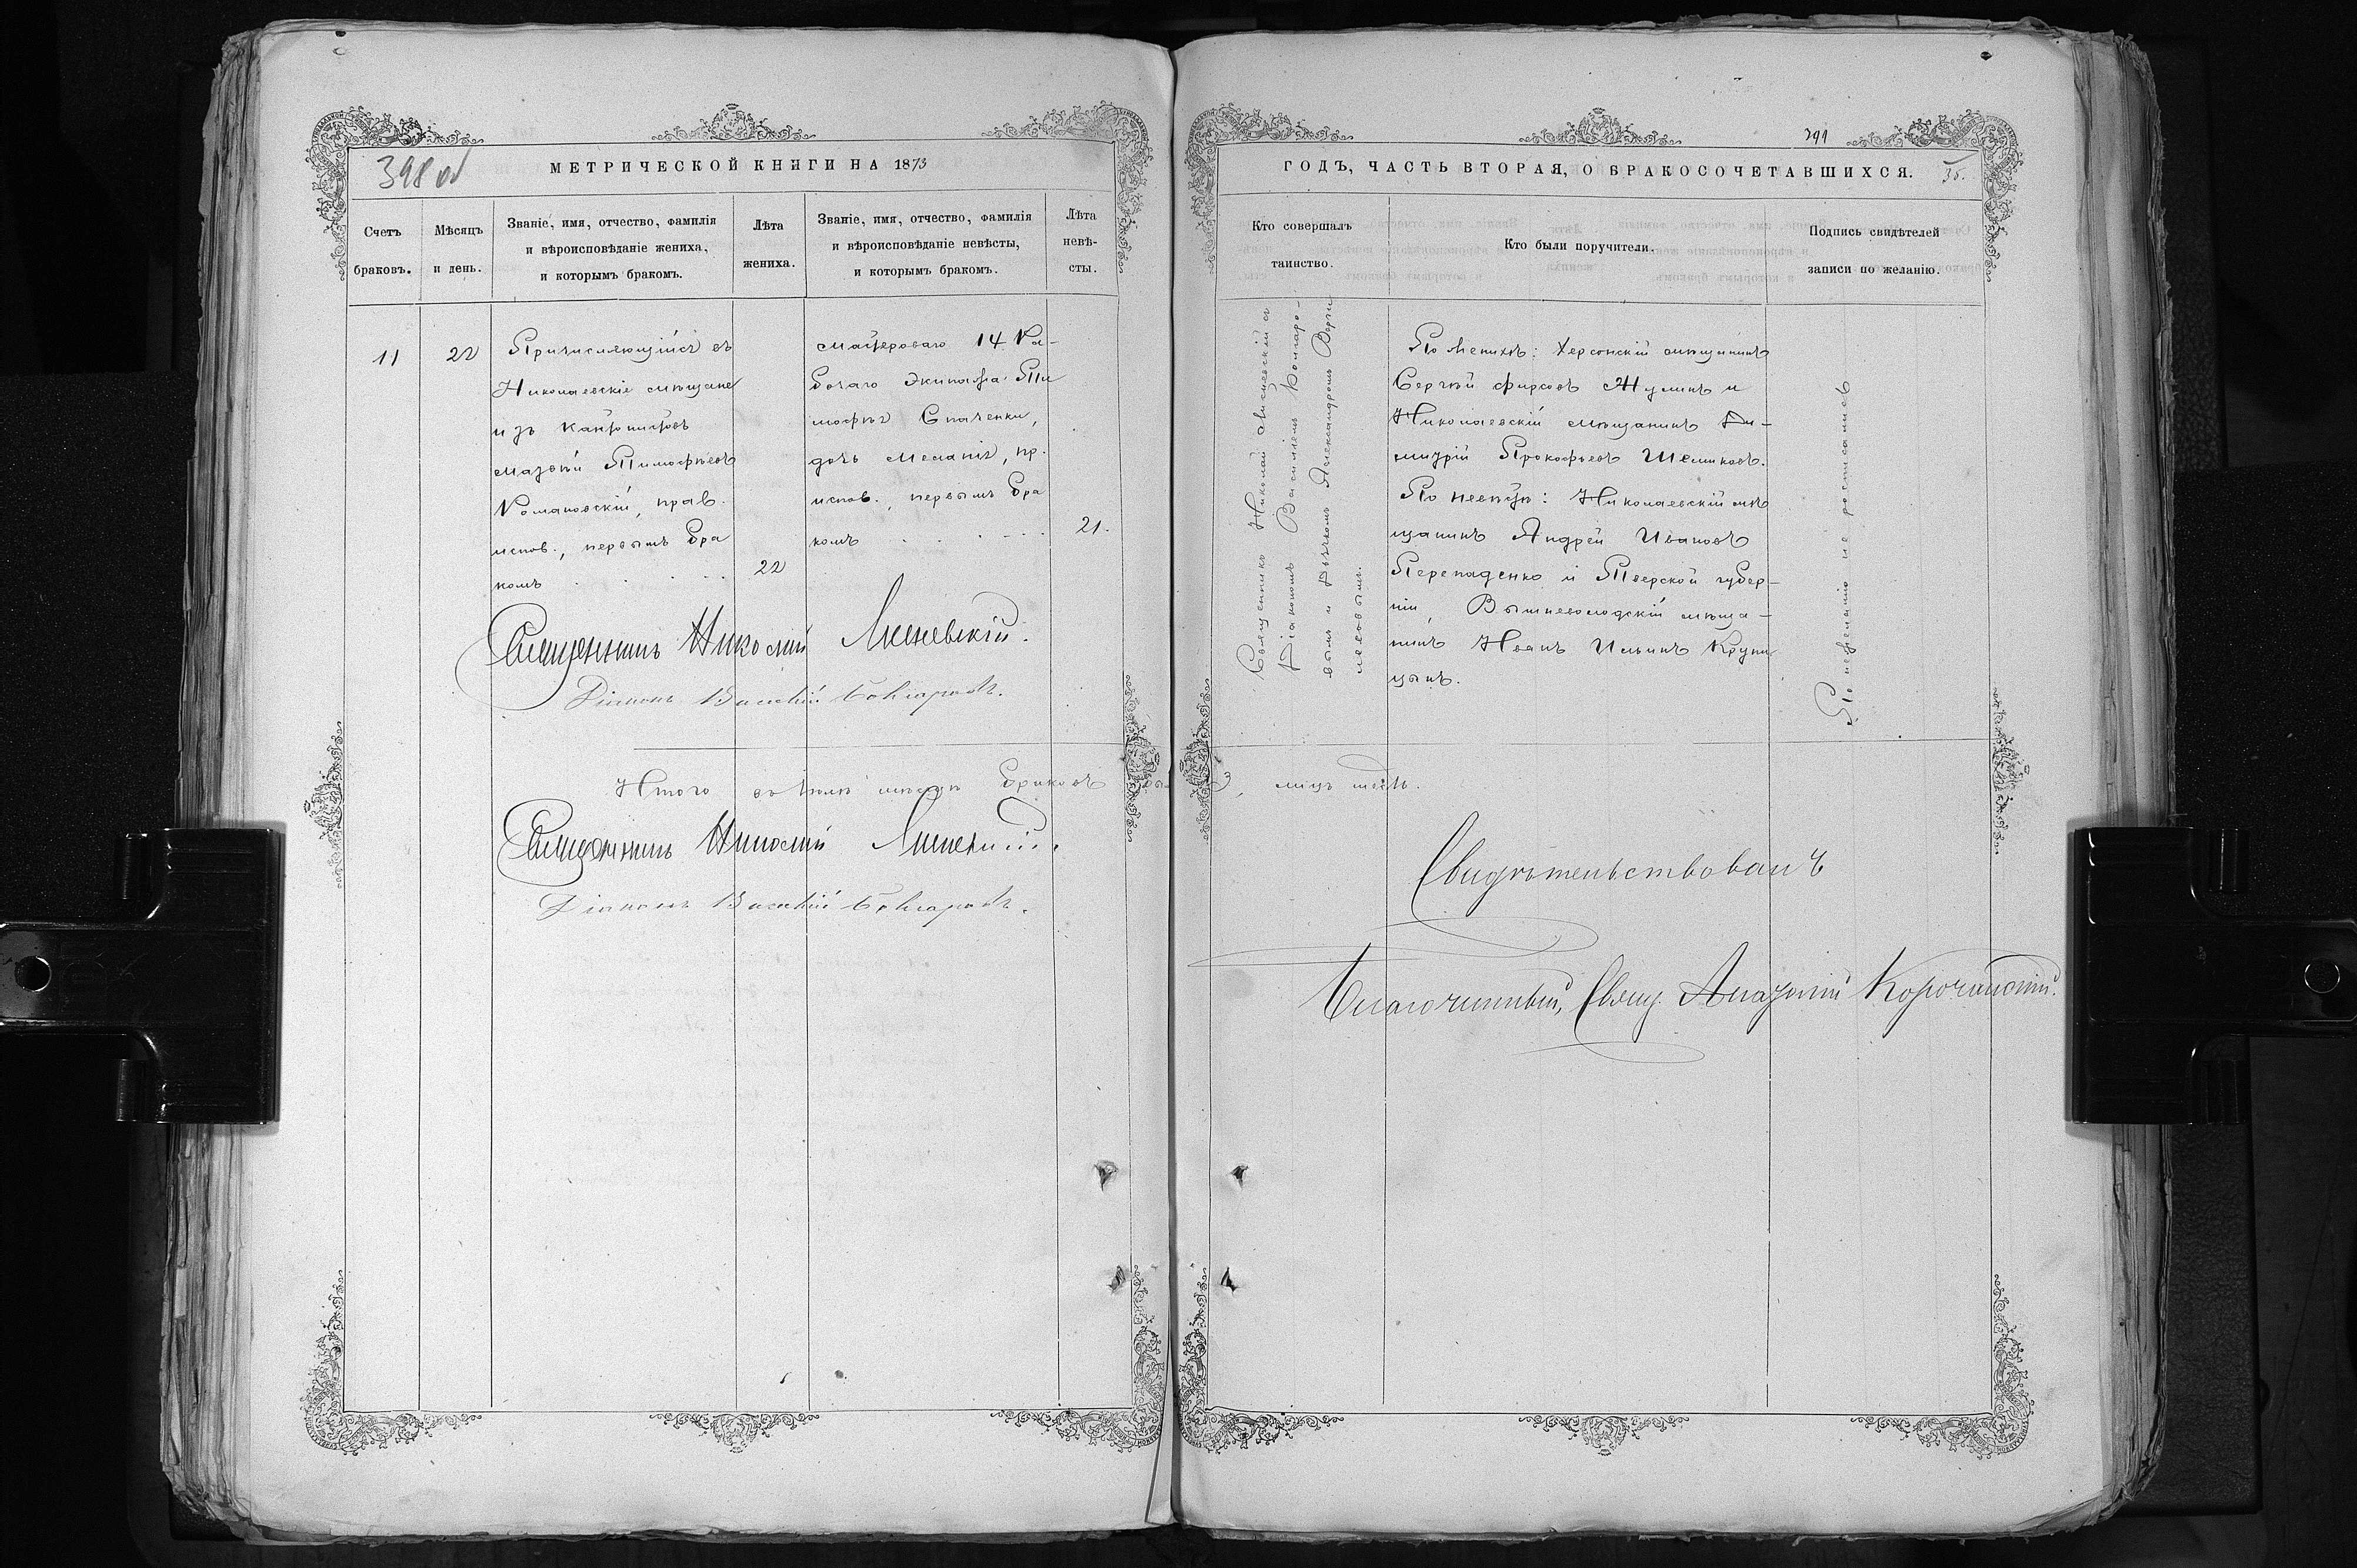 398 об
МЕТРИЧЕСКОЙ КНИГИ НА 1873
Счетъ браковъ.
Мѣсяцъ и день.
Званіе, имя, отчество, фамилія
и вѣроисповѣданіе жениха,
и которымъ бракомъ.
Лѣта
жениха.
Званіе, имя, отчество, фамилія
и вѣроисповѣданіе невѣсты,
и которымъ бракомъ.
Лѣта
невѣ-
сты.
11
22
Причисляющійся въ
Николаевскіе мѣщане
изъ кантонистовъ
Матвѣй Тимофѣевъ
Романовскій, прав.
испов., первымъ бра
комъ
22
Мастероваго 14 Ра-
бочаго Экипажа Ти
мофея Спаченки,
дочь Меланія, пр.
испов., первымъ бра
комъ
21.
Священникъ Николай
Діаконъ Василій Болгаровъ.
Итого въ мѣсяцѣ браковъ
Священникъ Николай
Діаконъ Василій Болгаровъ.
391
ГОДЪ, ЧАСТЬ ВТОРАЯ, О БРАКОСОЧЕТАВШИХСЯ.
35.
Кто совершалъ
таинство.
Кто были поручители.
Подпись свидѣтелей
записи по желанію.
Священникъ Николай съ
Діакономъ Василіемъ Болгаро-
вымъ и Дьячкомъ Александромъ
По женихѣ: Херсонскій мѣщанинъ
Сергѣй Фирсовъ Жулинъ и
Николаевскій мѣщанинъ Ди-
митрій Прокофьевъ Шешиковъ.
По невѣстѣ: Николаевскій мѣ
щанинъ Андрей Ивановъ
Перепаденко и Тверской губер-
ніи Вышневолодскій мѣща-
нинъ Иванъ Ильинъ Крупи
цынъ.
По нежеланію не росписались
3, лицъ шесть.
Свидѣтельствовалъ
Благочинный, Свящ. Анатолій Корочанскій.